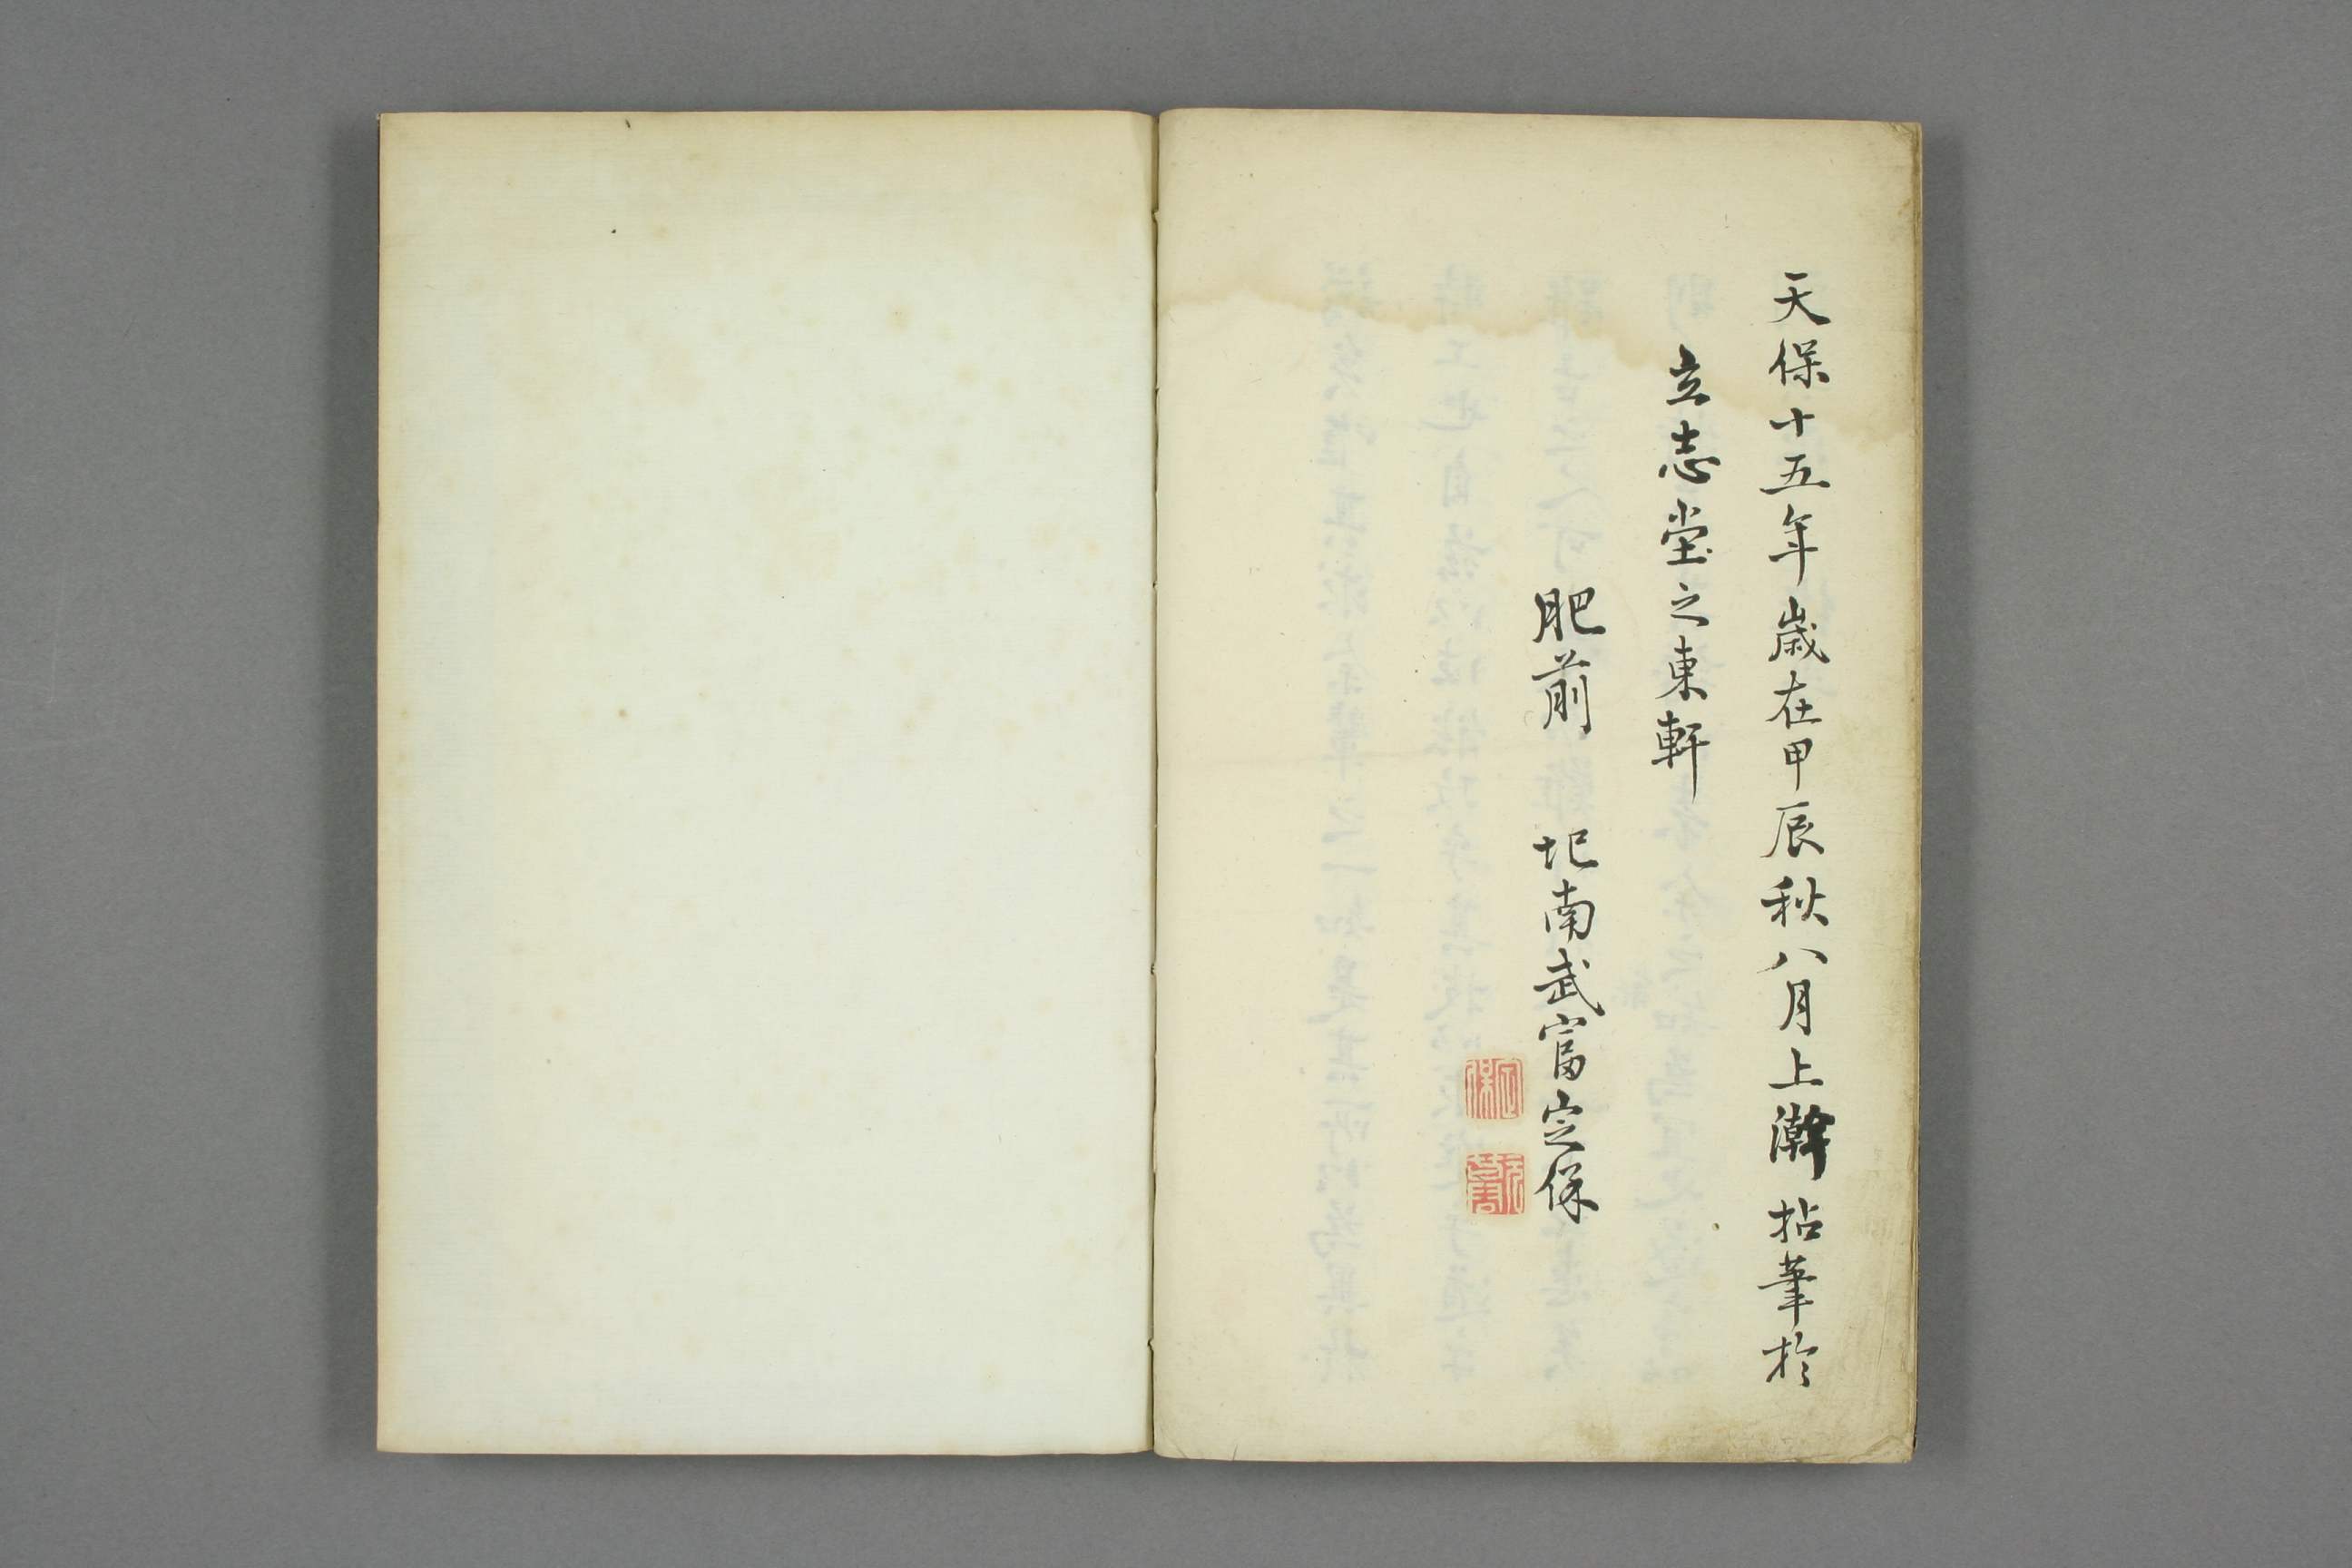 天保十五年歳在甲辰秋八月上澣拈筆於
立志堂之東軒
肥前　圯南武富定保